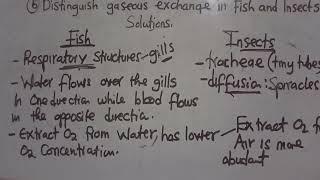 (b) Distinguish gaseous exchange in Fish and Insects
Solutions.
Fish
- Respiratory Structures - gills
- Water flows over the gills
in One direction while blood flows
in the opposite direction.
- Extract O2 From Water, has lower
O2 Concentration.
Insects
- tracheae (tiny tubes
- diffusion: Spiracles
- Extract O2 f
Air is more
abundant